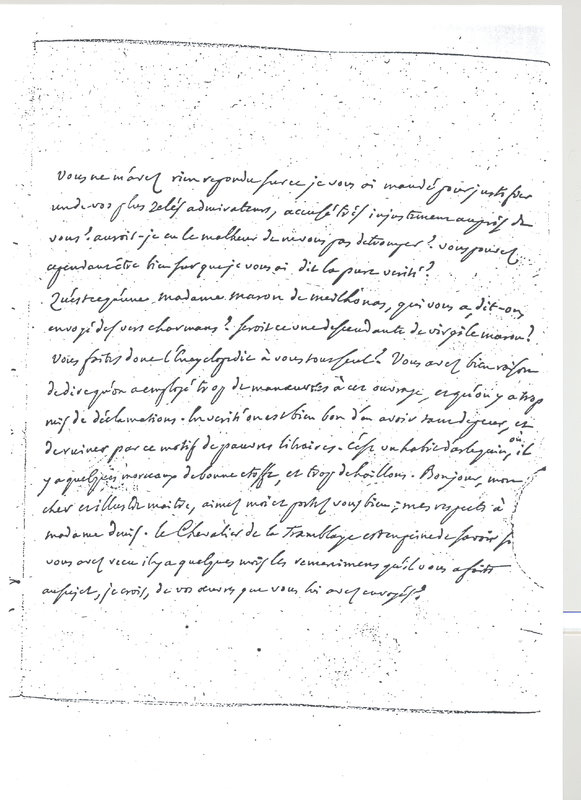 Vous ne m'avez rien repondu sur ce que je vous ai mandé pour justifier
un de vos plus zelés admirateurs, accusé très injustement auprès de
vous? aurois-je eu le malheur de ne vous pas detromper? vous pouvez
cependant être bien sur que je vous ai dit la pure verité?
Qu'est ce qu'une madame maron de meilhonas, qui vous a, dit-on
envoyé des vers charmans? seroit ce une descendante de virgile maron?
Vous faites donc l'Encyclopedie à vous tout seul? Vous avez bien raison
de dire qu'on a employé trop de manœuvres à cet ouvrage, et qu'on y a trop
mis de déclamations. En verité on est bien bon d'en avoir tant de peur, et
de ruiner par ce motif de pauvres libraires. C'est un habit d'arlequin, où il
y a quelques morceaux de bonne etoffe, et trop de haillons. Bonjour, mon
cher et illustre maitre, aimez moi et portez vous bien; mes respects à
madame denis. Le Chevalier de la Tramblaye est en peine de savoir si
vous avez recu il y a quelques mois les remercimens qu'il vous a faits
au sujet, je crois, de vos œuvres que vous lui avez envoyées?